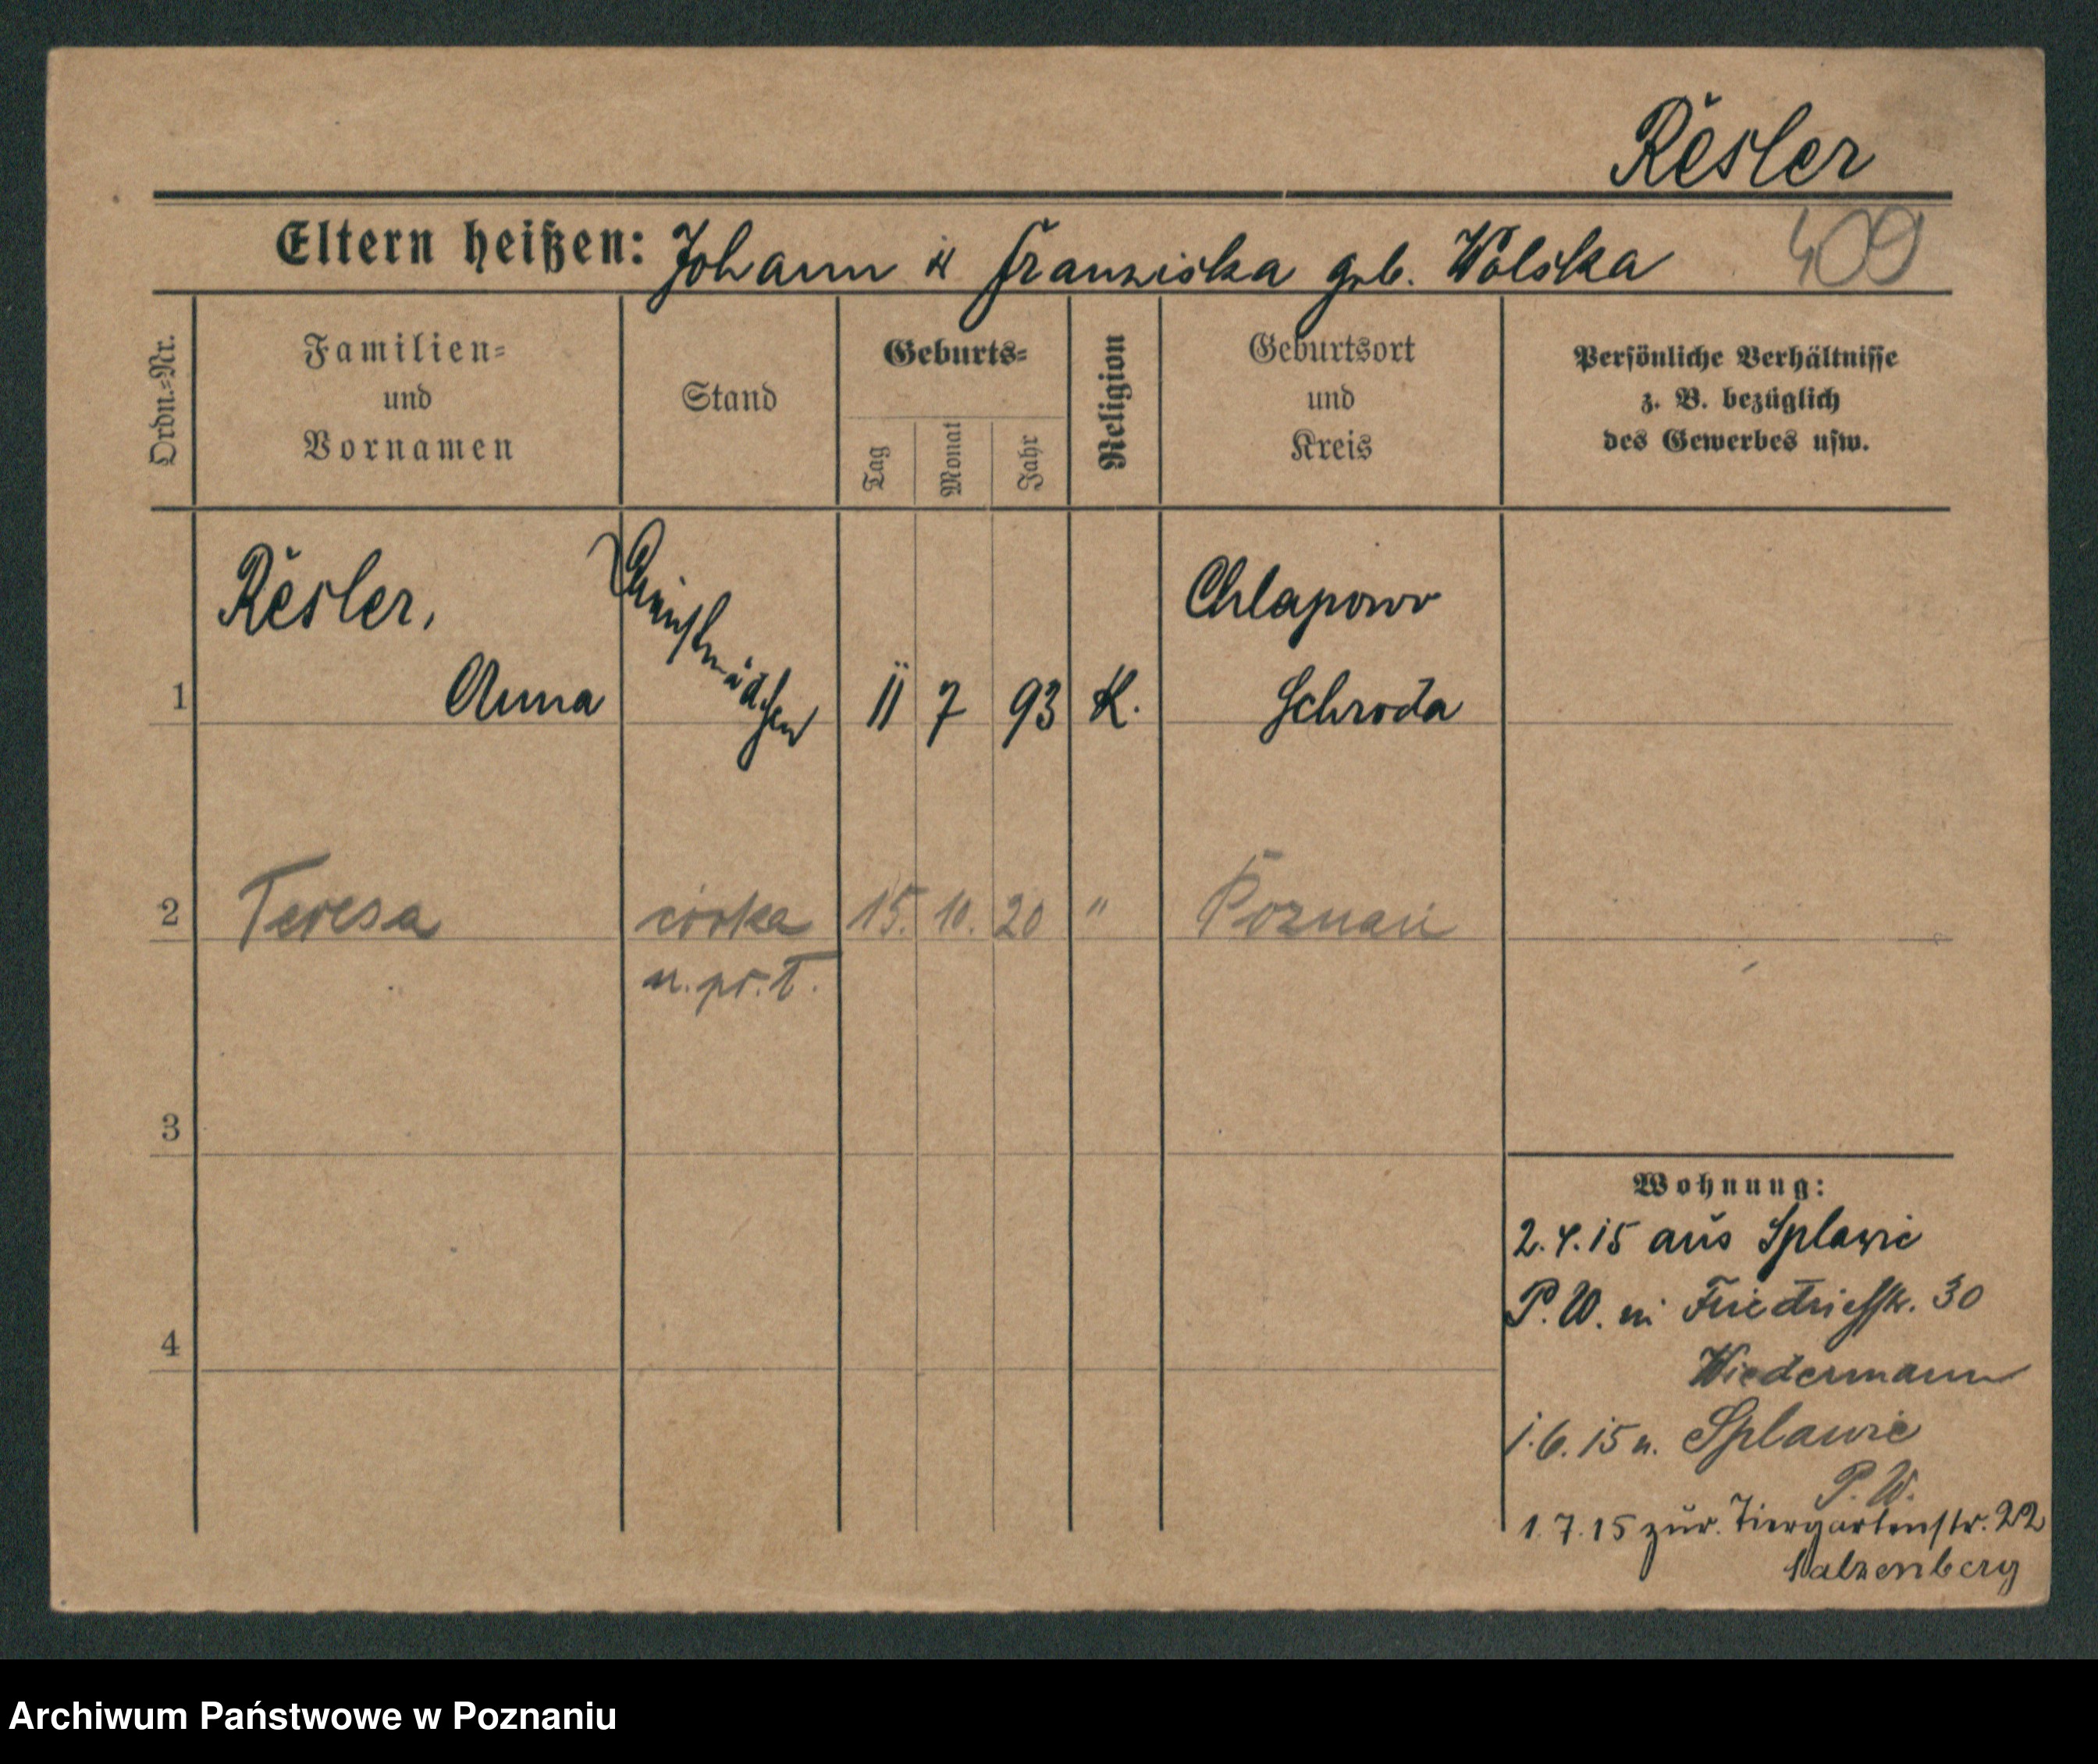 Rěsler
Eltern heißen: Johann u Franziska geb. Wolska
409
Ordn.-Nr.
Familien-
und
Vornamen
Stand
Geburts-
Tag
Monat
Jahr
Religion
Geburtsort
und
Kreis
Persönliche Verhältnisse
z. B. bezüglich
des Gewerbes usw.
Rěsler,
Dienstmädchen
Chlapowo
1 Anna 11 7 93 K. Schroda
2 Teresa córka 15. 10. 20 " Poznań
n. pr. T.
3
Wohnung:
2.4.15 aus Splawie
P. W. in Friedrichstr. 30
4
Wiedermann
1.6.15 n. Splawie
P. W.
1.7.15 zur. Tiergartenstr. 22
Salzenberg
Archiwum Państwowe w Poznaniu